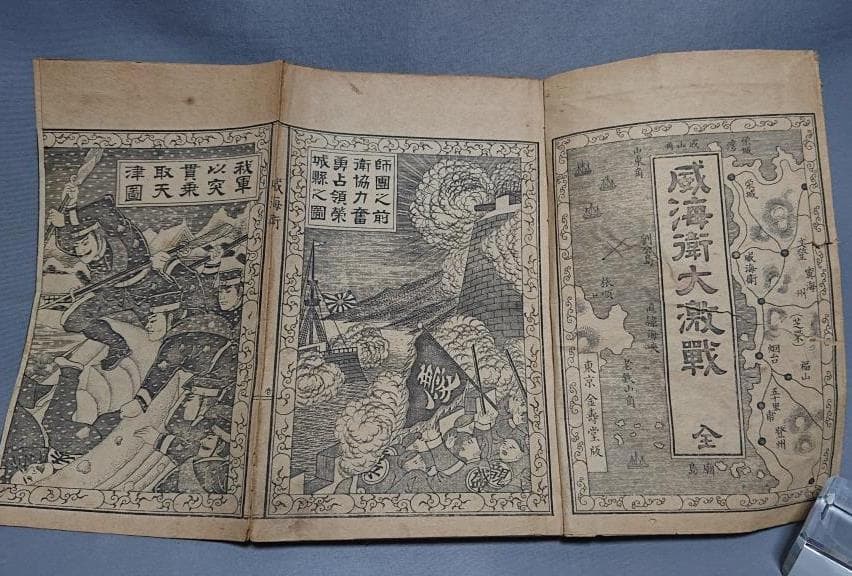 威海衛大激戰 全
東京 金壽堂版
成山角
山東角
榮城
威海衛
劉公島
旅順
寧海
州
(芝罘)
烟台
福山
登州
廟島
師團之前
衛協力奮
勇占領榮
城縣之圖
威海衛
我軍
以突
貫乘
取天
津圖